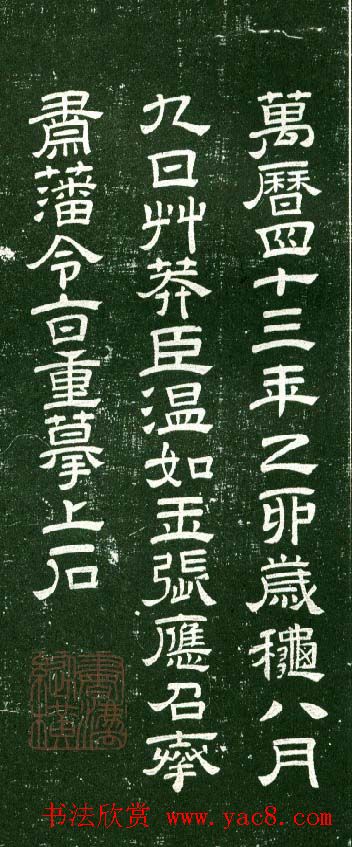 萬曆四十三年乙卯歲龝八月
九日艸莽臣温如玉張應召奉
肅藩令旨重摹上石
书法欣赏 www.yac8.com